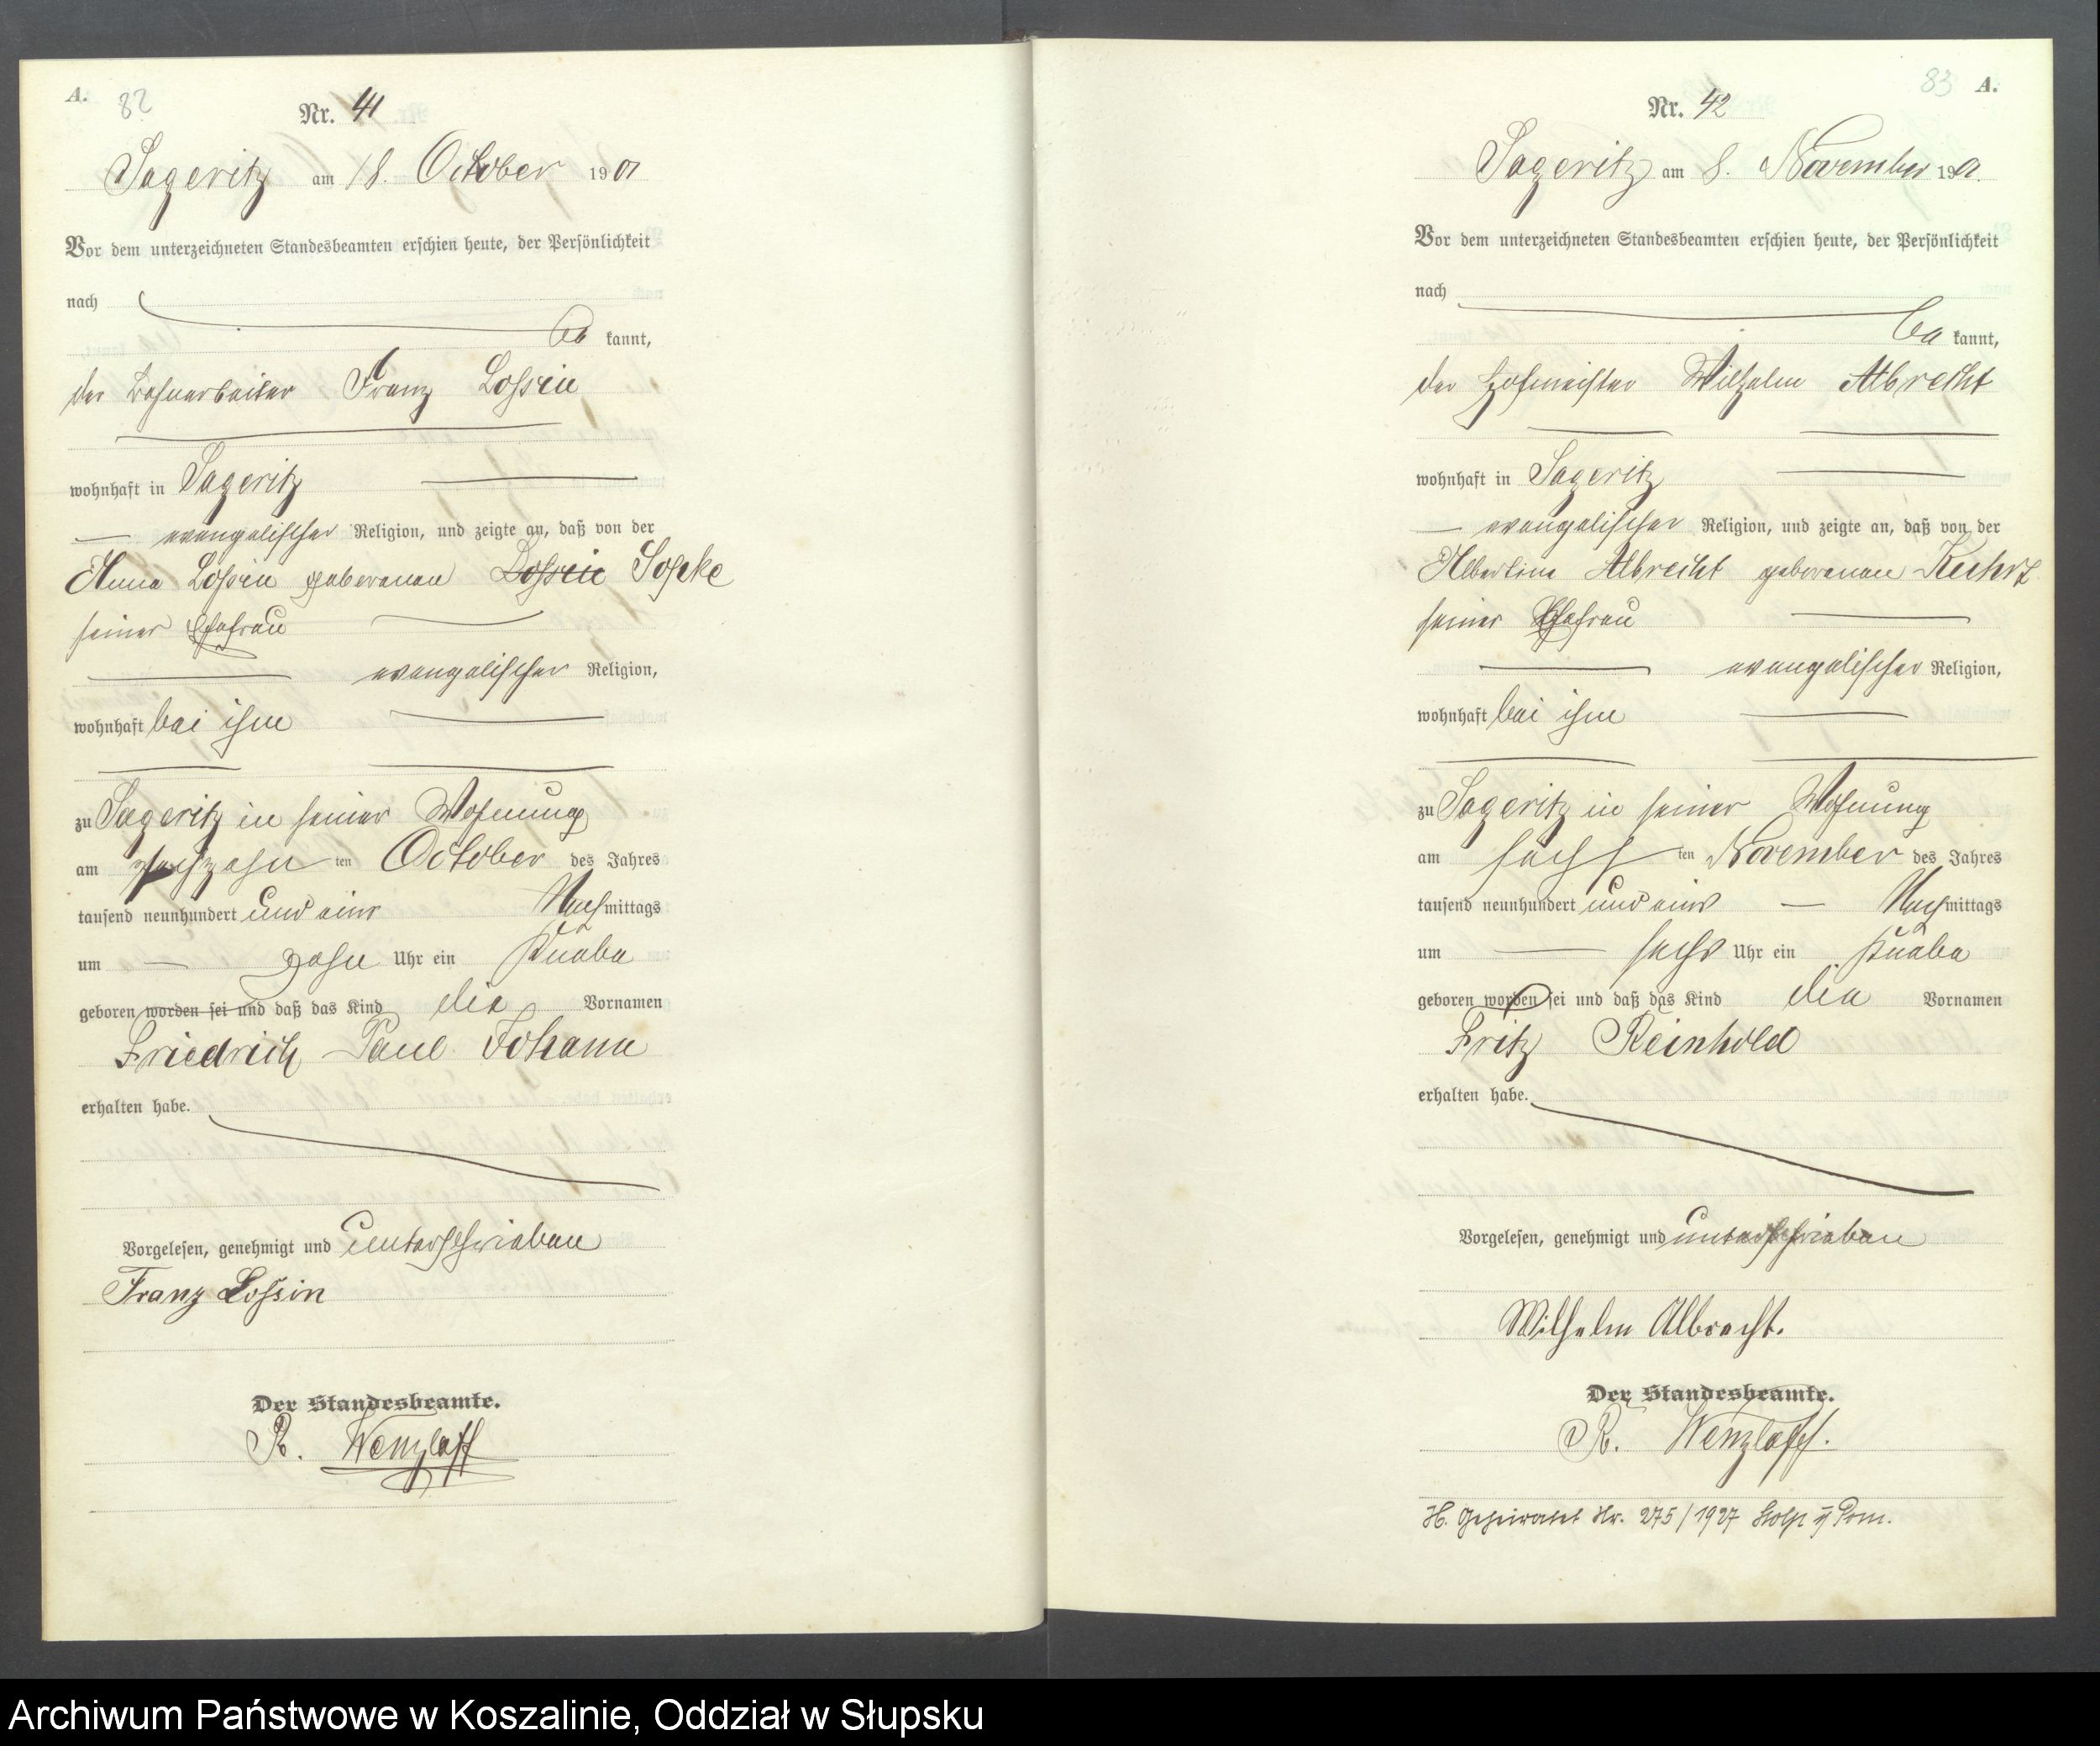 A. 82
Nr. 41
Sageritz am 18. October 1901
Vor dem unterzeichneten Standesbeamten erschien heute, der Persönlichkeit
nach
be kannt,
der Bahnarbeiter Franz Lossin
wohnhaft in Sageritz
evangelischer Religion, und zeigte an, daß von der
Anna Lossin geborenen Lossin Sopke
seiner Ehefrau
evangelischer Religion,
wohnhaft bei ihm
zu Sageritz in seiner Wohnung
am ten October des Jahres
tausend neunhundert und eins Nachmittags
um zehn Uhr ein Knabe
geboren worden sei und daß das Kind die Vornamen
Friedrich Paul Johann
erhalten habe.
Vorgelesen, genehmigt und unterschrieben
Franz Lossin
Der Standesbeamte.
R. Wenzlaff
83 A.
Nr. 42
Sageritz am 8. November 1901.
Vor dem unterzeichneten Standesbeamten erschien heute, der Persönlichkeit
nach
be kannt,
der Hofmeister Wilhelm Albrecht
wohnhaft in Sageritz
evangelischer Religion, und zeigte an, daß von der
Albertine Albrecht geborenen
seiner Ehefrau
evangelischer Religion,
wohnhaft bei ihm
zu Sageritz in seiner Wohnung
am sechs ten November des Jahres
tausend neunhundert und eins Nachmittags
um sechs Uhr ein Knabe
geboren worden sei und daß das Kind die Vornamen
Fritz Reinhold
erhalten habe.
Vorgelesen, genehmigt und unterschrieben
Wilhelm Albrecht.
Der Standesbeamte.
R. Wenzlaff.
H. Geheiratet Nr. 275/1927 Stolp i/ Pom.
Archiwum Państwowe w Koszalinie, Oddział w Słupsku